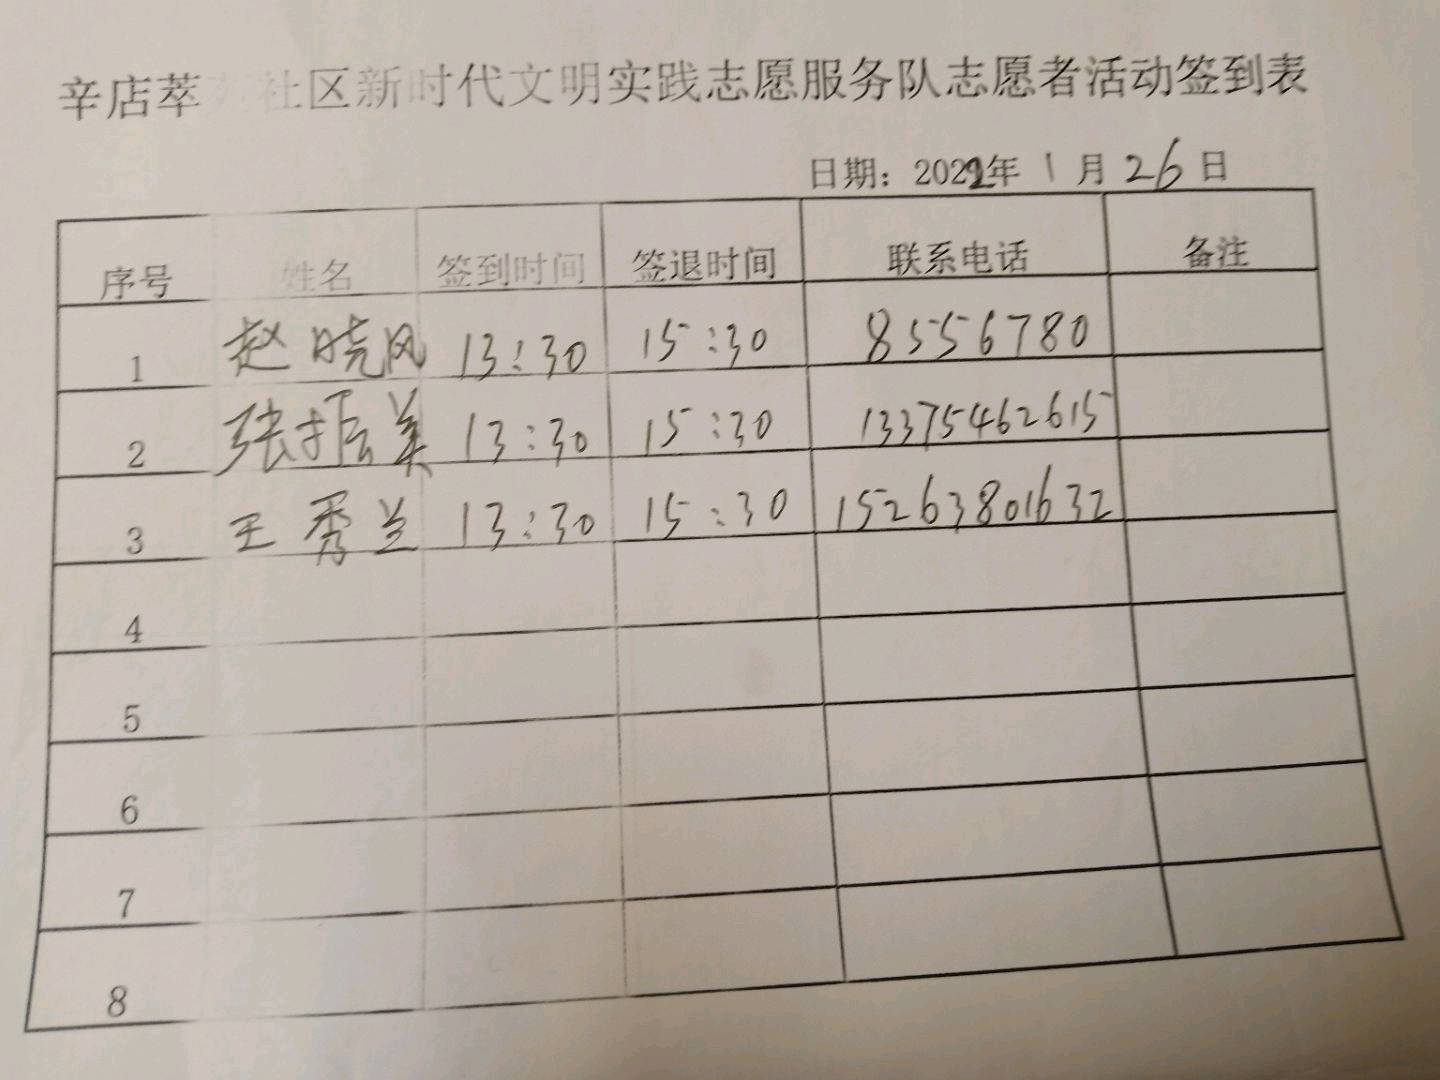 辛店萃 社区新时代文明实践志愿服务队志愿者活动签到表
日期：2022年 1 月 26 日
序号 姓名 签到时间 签退时间 联系电话 备注
1 赵晓风 13:30 15:30 8556780
2 张振美 13:30 15:30 13375462615
3 王秀兰 13:30 15:30 15263801632
4
5
6
7
8